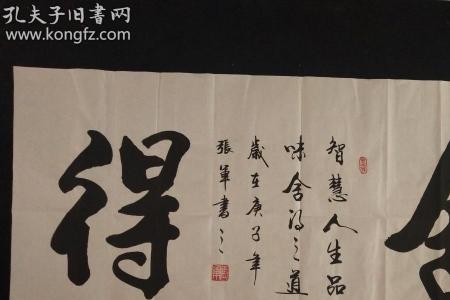 孔夫子旧书网
www.kongfz.com
得
智慧人生品
味舍得之道
歲在庚子年
張軍書之